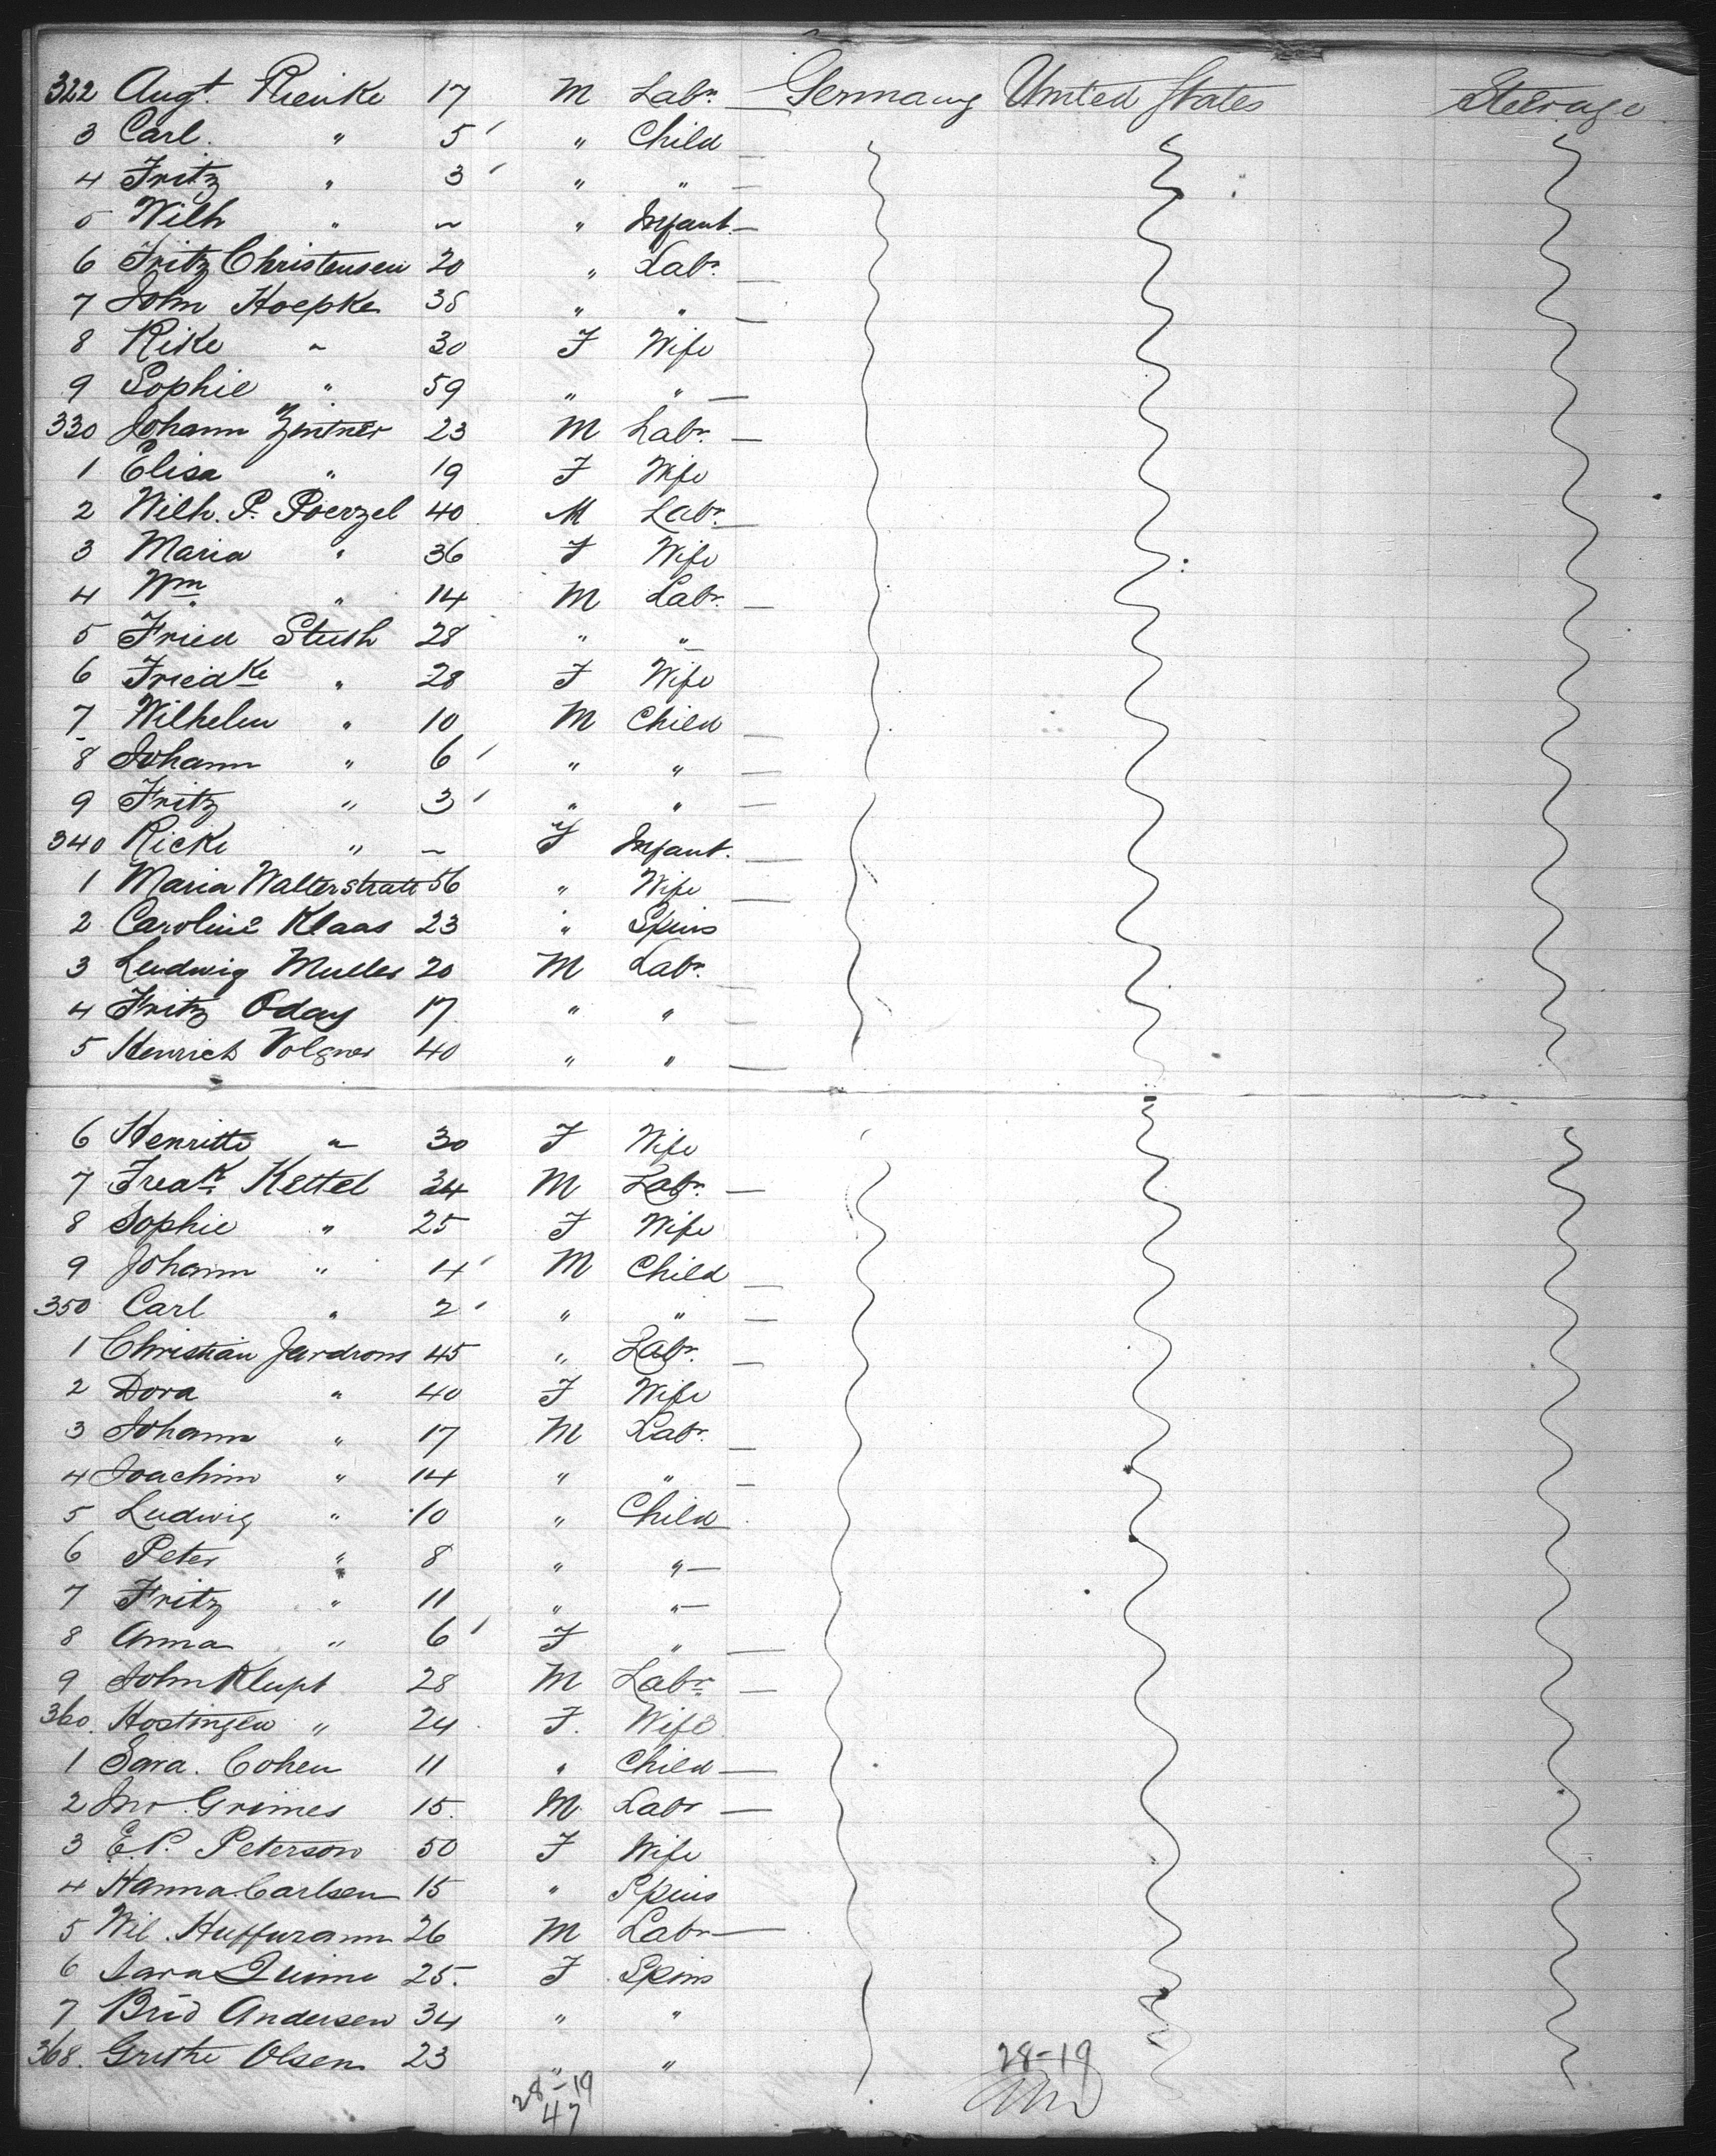 322 Augt. Rienke 17 M Labr. Germany United States Steerage
3 Carl " 5 " Child
4 Fritz " 3 " "
5 Wilh " ~ " Infant
6 Fritz Christensen 20 " Labr.
7 John Hoepke 38 " "
8 Rike " 30 F Wife
9 Sophie " 59 " "
330 Johann Zintner 23 M Labr.
1 Elisa " 19 F Wife
2 Wilh. P. Poerzel 40 M Labr.
3 Maria " 36 F Wife
4 Wm " 14 M Labr.
5 Fried Stuth 28 " "
6 Friedke " 28 F Wife
7 Wilhelm " 10 M Child
8 Johann " 6 " "
9 Fritz " 3 " "
340 Ricke " ~ F Infant.
1 Maria Walterstratt 56 " Wife
2 Caroline Klaas 23 " Spins
3 Ludwig Muller 20 M Labr.
4 Fritz Oday 17 " "
5 Henrich Volgner 40 " "
6 Henritte " 30 F Wife
7 Fredk Kettel 34 M Labr.
8 Sophie " 25 F Wife
9 Johann " 4 M Child
350 Carl " 2 " "
1 Christian Jardrons 45 " Labr.
2 Dora " 40 F Wife
3 Johann " 17 M Labr.
4 Joachim " 14 " "
5 Ludwig " 10 " Child
6 Peter " 8 " "
7 Fritz " 11 " "
8 Anna " 6 F "
9 John Klupt 28 M Labr.
360. Hostingen " 24 F. Wife
1 Sara. Cohen 11 " Child
2 Jno Grimes 15. M Labr
3 E. P. Peterson 50 F Wife
4 Hanna Carlsen 15 " Spins
5 Wil. Huffmann 26 M Labr
6 Sara Quinn 25. F Spins
7 Brid Andersen 34 " "
368. Grethe Olsen 23 " "
28-19 28-19
47